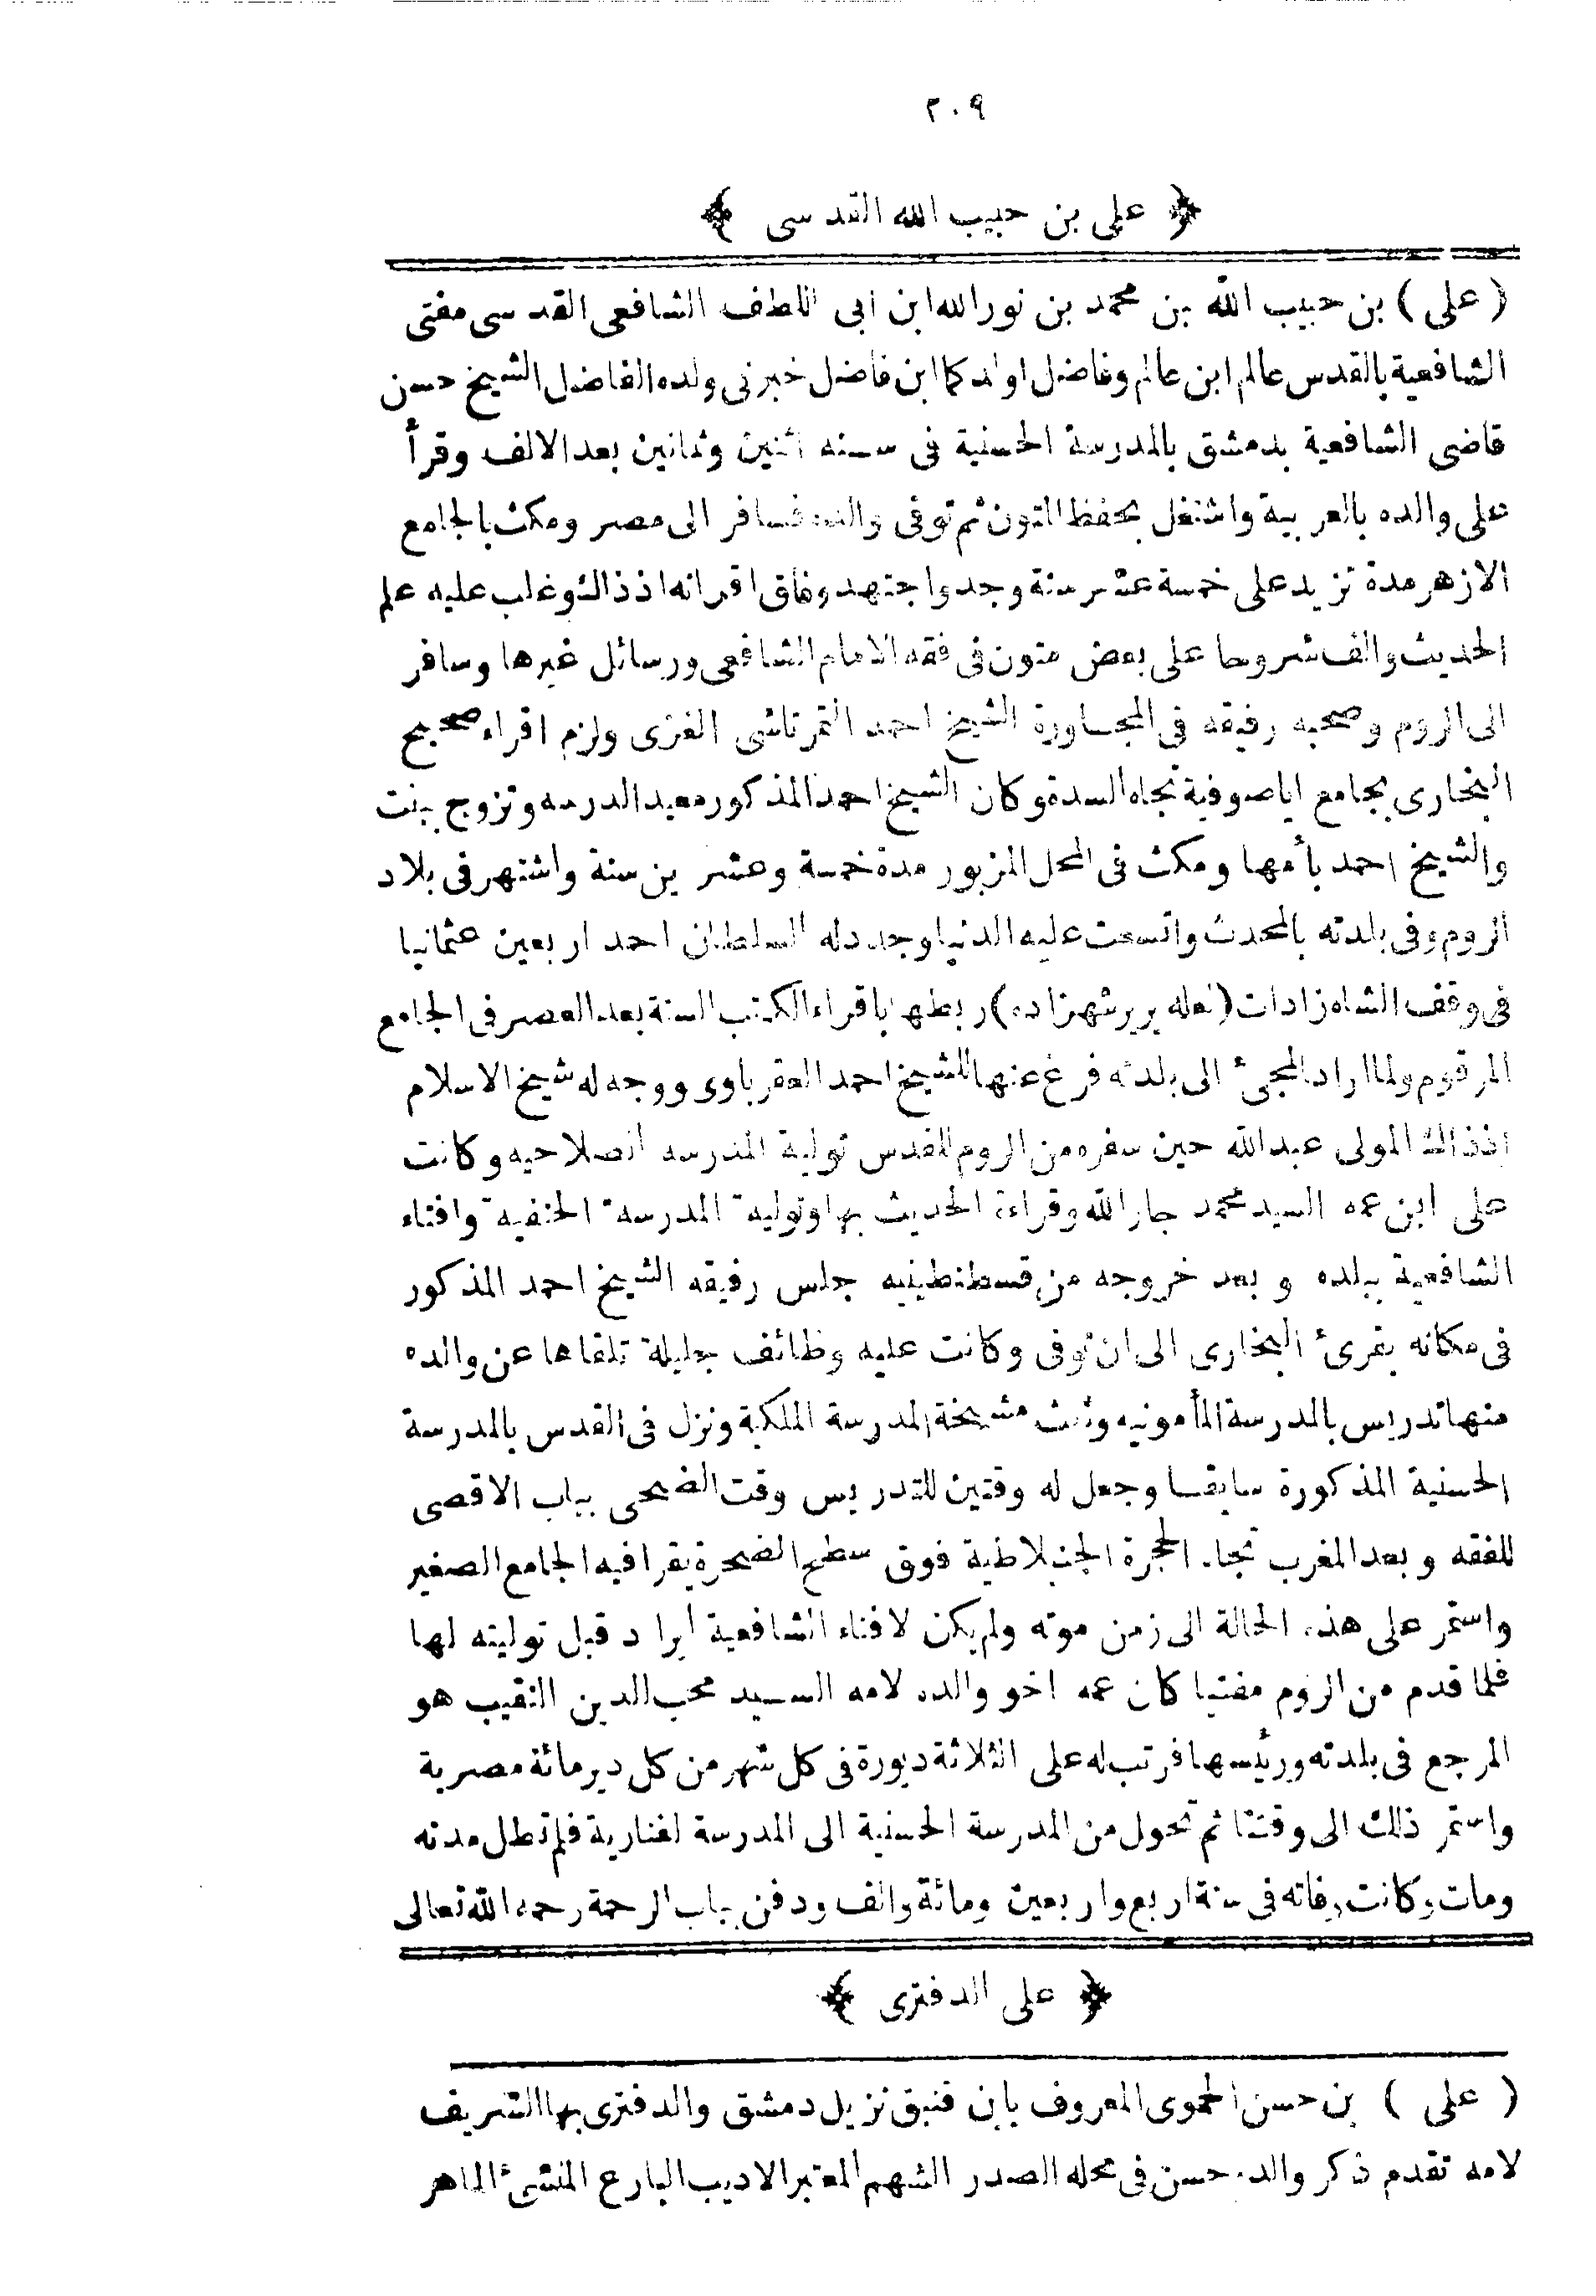 ٢٠٩
﴿ على بن حبيب الله القدسى ﴾
( على ) بن حبيب الله بن محمد بن نور الله ابن ابى اللطف الشافعى القدسى مفتى
الشافعية بالقدس عالم ابن عالم وفاضل اولد كما ابن فاضل خبرنى ولده الفاضل الشيخ حسن
قاضى الشافعية بدمشق بالمدرسة الحسنية فى سنه اثنين وثمانين بعد الالف وقرأ
على والده بالعربية واشتغل بحفظ المتون ثم توفى والده فسافر الى مصر ومكث بالجامع
الازهر مدة تزيد على خمسة عشر سنة وجد واجتهد وفاق اقرانه اذ ذاك وغلب عليه علم
الحديث والف شروحا على بعض متون فى فقه الامام الشافعى ورسائل غيرها وسافر
الى الروم وصحبه رفيقه فى المجاورة الشيخ احمد التمرتاشى الغزى ولزم اقراء صحيح
البخارى بجامع اياصوفية تجاه السدة وكان الشيخ احمد المذكور معيد الدرسه وتزوج ببنت
والشيخ احمد بأمها ومكث فى المحل المزبور مدة خمسة وعشرين سنة واشتهر فى بلاد
الروم وفى بلدته بالمحدث واتسعت عليه الدنيا وجدد له السلطان احمد اربعين عثمانيا
فى وقف الشاه زادات (لعله بريرشهزاده) ربطها باقراء الكتب الستة بعد العصر فى الجامع
المرقوم ولما اراد المجئ الى بلدته فرغ عنها للشيخ احمد العقرباوى ووجه له شيخ الاسلام
اذ ذاك المولى عبد الله حين سفره من الروم للقدس تولية المدرسه الصلاحيه وكانت
على ابن عمه السيد محمد جار الله وقراءة الحديث بها وتوليه المدرسه الحنفيه وافتاء
الشافعية ببلده وبعد خروجه من قسطنطينيه جلس رفيقه الشيخ احمد المذكور
فى مكانه يقرئ البخارى الى ان توفى وكانت عليه وظائف جليلة تلقاها عن والده
منها تدريس بالمدرسة المأمونيه وثلث مشيخة المدرسة الملكية ونزل فى القدس بالمدرسة
الحسنية المذكورة سابقا وجعل له وقتين للتدريس وقت الضحى بباب الاقصى
للفقه وبعد المغرب تجاه الحجرة الجنبلاطية فوق سطح الصخرة يقرا فيه الجامع الصغير
واستمر على هذه الحالة الى زمن موته ولم يكن لافتاء الشافعية ايراد قبل توليته لها
فلما قدم من الروم مفتيا كان عمه اخو والده لامه السيد محب الدين النقيب هو
المرجع فى بلدته ورئيسها فرتب له على الثلاثة ديورة فى كل شهر من كل دير مائة مصرية
واستمر ذلك الى وقتنا ثم تحول من المدرسة الحسنية الى المدرسة لغنارية فلم تطل مدته
ومات وكانت وفاته فى سنة اربع واربعين ومائة والف ودفن بباب الرحمة رحمه الله تعالى
﴿ على الدفترى ﴾
( على ) بن حسن الحموى المعروف بابن قنبق نزيل دمشق والدفترى بها الشريف
لامه تقدم ذكر والده حسن فى محله الصدر الشهم المعتبر الاديب البارع المنشئ الماهر